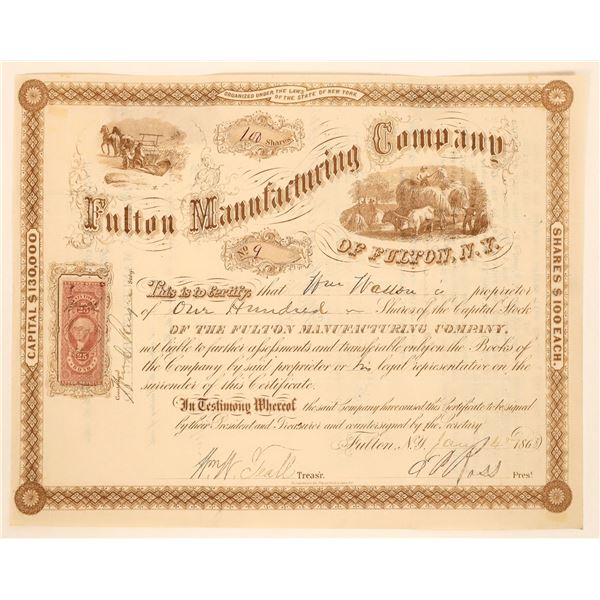 ORGANIZED UNDER THE LAWS
OF THE STATE OF NEW YORK
100 Shares
Fulton Manufacturing Company
OF FULTON, N.Y.
No 9
CAPITAL $130,000
SHARES $100 EACH.
25
25
This is to Certify, that Wm Walton is proprietor
of One Hundred Shares of the Capital Stock
OF THE FULTON MANUFACTURING COMPANY,
not liable to further assessments and transferable only on the Books of
the Company by said proprietor or his legal representative on the
surrender of this Certificate.
In Testimony Whereof the said Company have caused this Certificate to be signed
by their President and Treasurer and countersigned by the Secretary
Fulton, N.Y. Jany 186
Wm. W. Teall Treasr.
Ross Prest